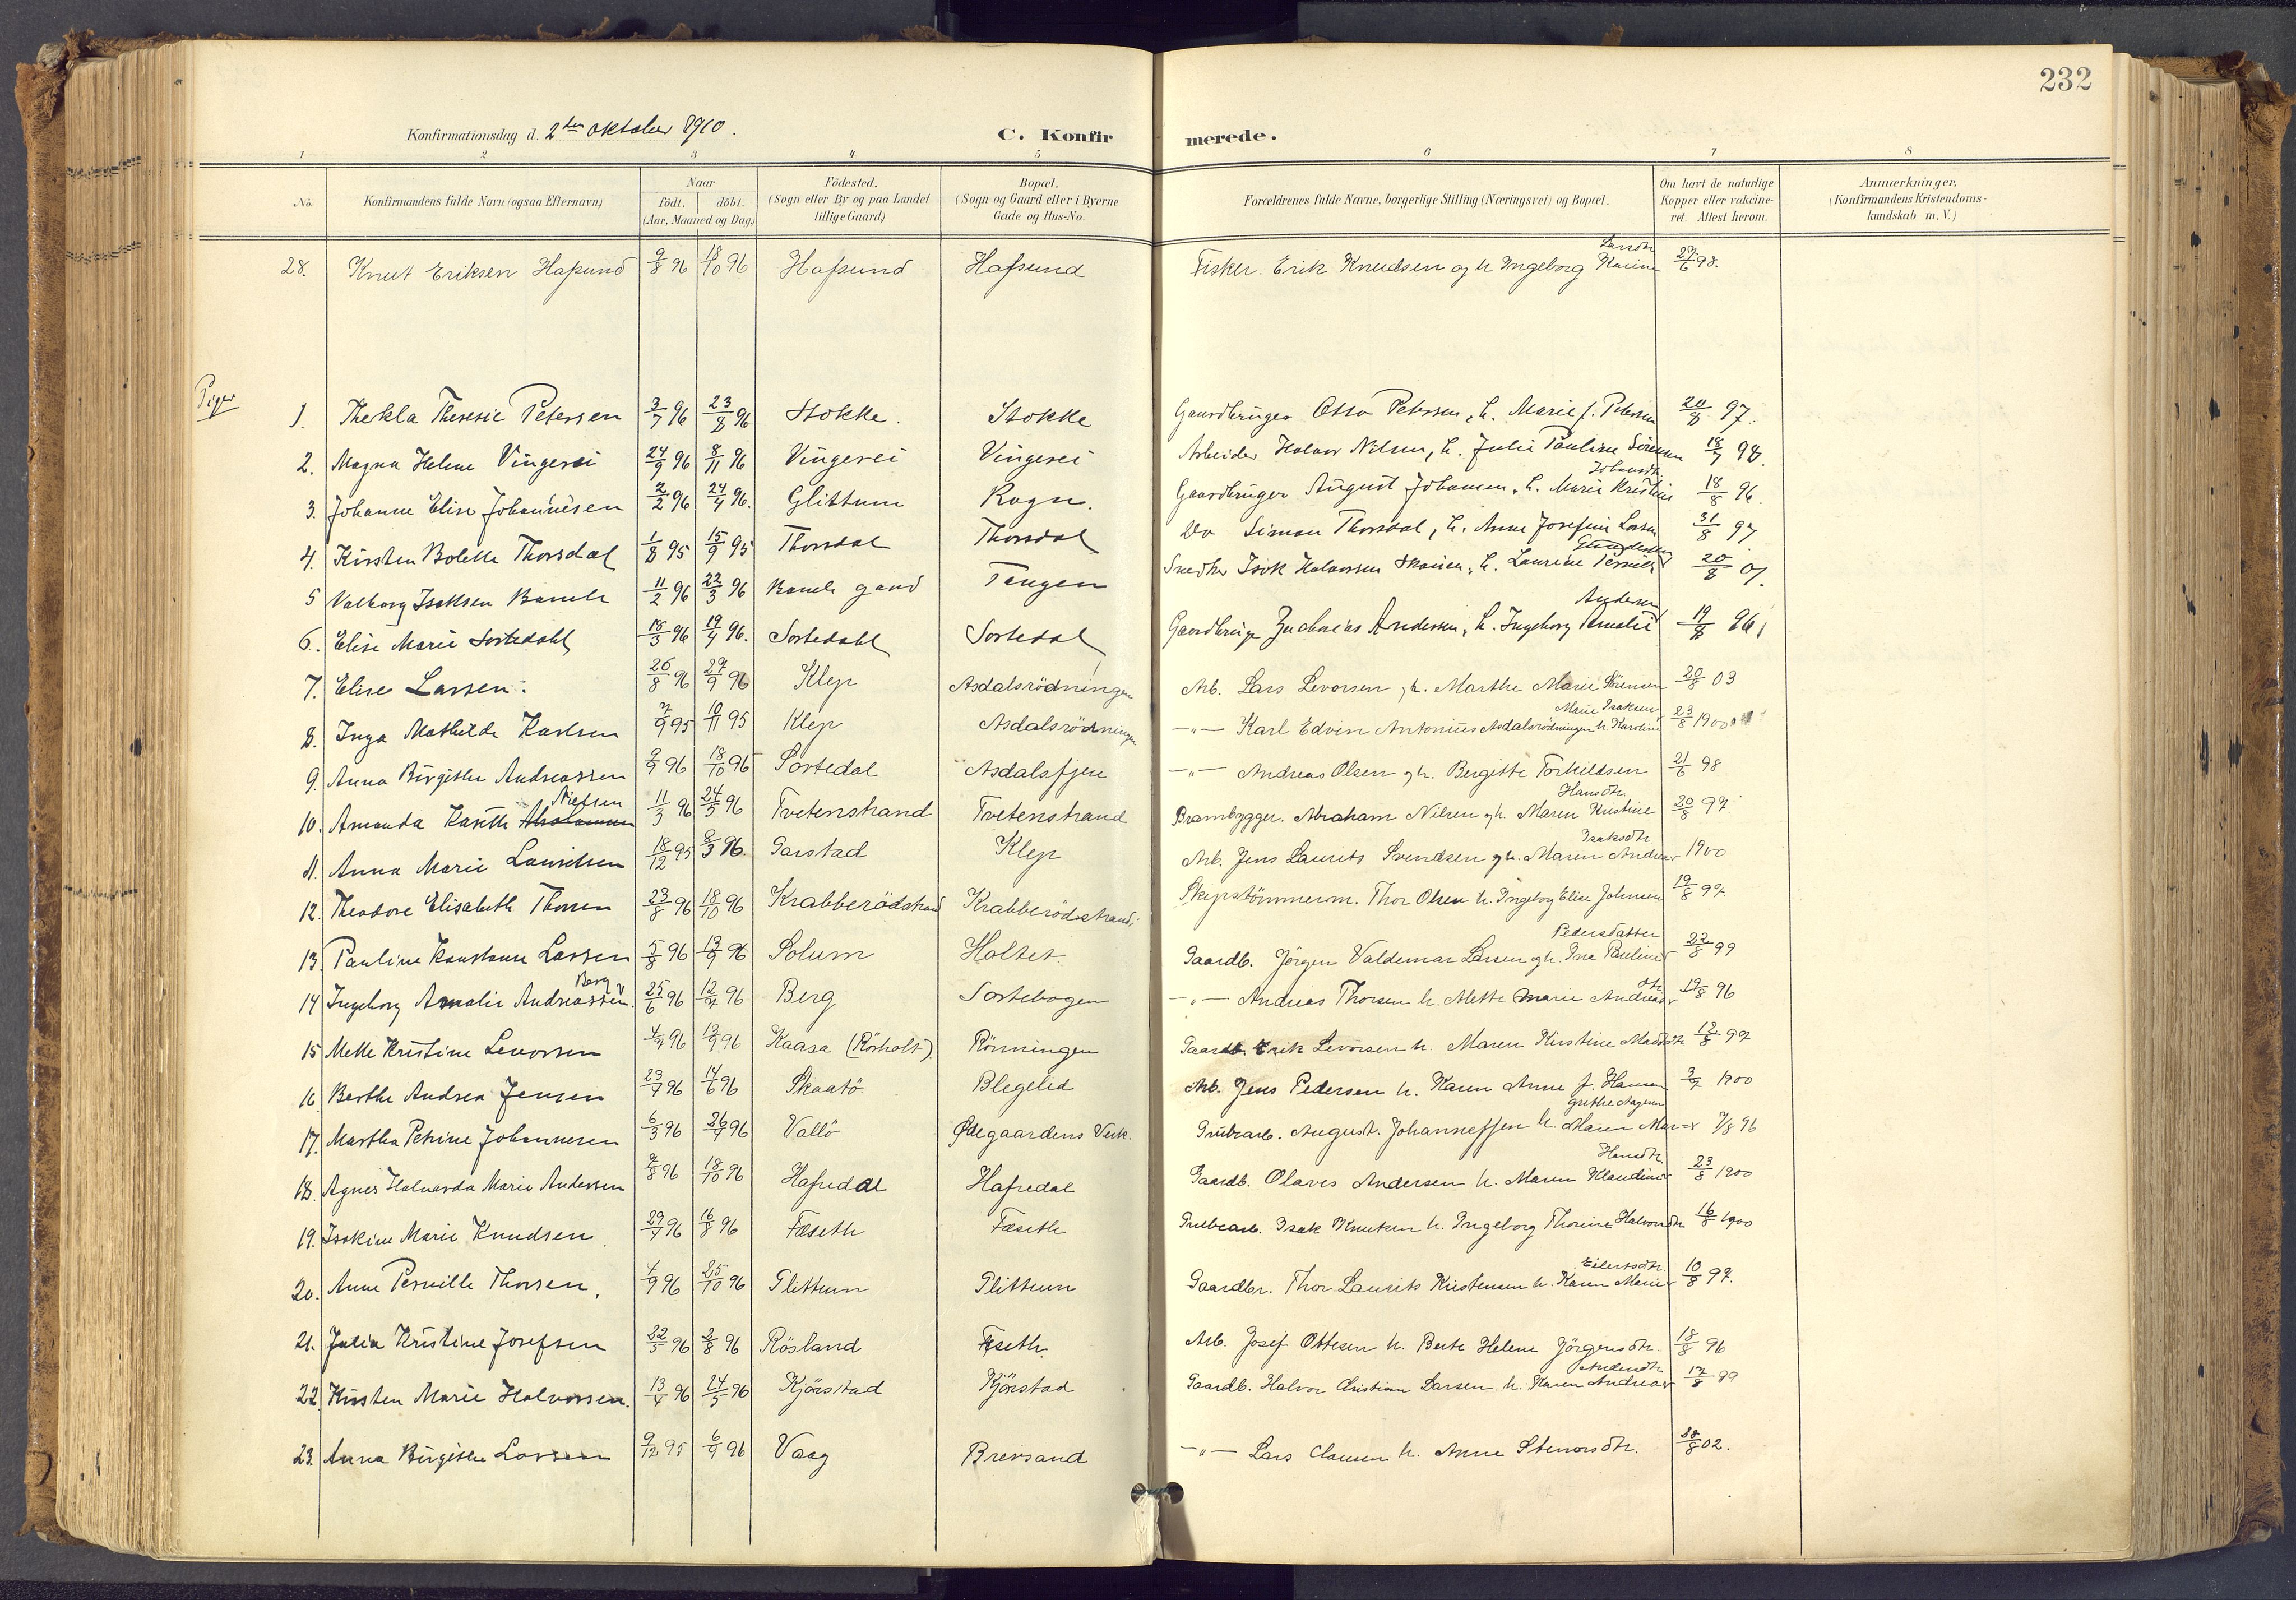 232
Konfirmationsdag d. 2den oktober 1910. C. Konfirmerede.
1 2 3 4 5 6 7 8
No. Konfirmandens fulde Navn (ogsaa Efternavn) Naar født. døbt. (Aar, Maaned og Dag) Födested. (Sogn eller By og paa Landet tillige Gaard) Bopæl. (Sogn og Gaard eller i Byerne Gade og Hus-No. Forældrenes fulde Navne, borgerlige Stilling (Næringsvei) og Bopæl. Om havt de naturlige Kopper eller vakcineret. Attest herom. Anmærkninger. (Konfirmandens Kristendomskundskab m. V.)
28. Knut Eriksen Hafsund 9/8 96 18/10 96 Hafsund Hafsund Fisker. Erik Knudsen og h. Ingeborg Karine Larsdtr 27/6 98.
Piger
1. Thekla Theresie Petersen 3/7 96 23/8 96 Stokke. Stokke Gaardbruger Otto Petersen, h. Marie f. Petersen 20/8 97.
2. Magna Helene Vingerei 24/9 96 8/11 96 Vingerei Vingerei Arbeider Halvor Nilsen, h. Julie Pauline Sörensen 18/7 98.
3. Johanne Elise Johannesen 2/2 96 24/4 96. Glittum Rogn. Gaardbruger August Johansen, h. Marie Kristine Johansdtr 18/8 96.
4. Kirsten Bolette Thorsdal 1/8 95 15/9 95 Thorsdal Thorsdal Do Simon Thorsdal, h. Anne Josefine Larsen 31/8 97
5 Valborg Isaksen Bamle 11/2 96 22/3 96 Bamle gaard Tangen Snedker Isak Halvorsen h. Laurine Pernille 20/8 01.
6. Elise Marie Sortedahl 18/3 96 19/4 96. Sortedahl Sortedal Gaardbruge Zacharias Andersen, h. Ingeborg Amalie Andersen 19/8 96
7. Elise Larsen. 26/8 96 27/9 96 Klep Asdalsrödningen Arb. Lars Levorsen, h. Marthe Marie Sörensen 20/8 03
8. Inga Mathilde Karlsen 7/9 95 10/11 95 Klep Asdalsrödningen -"- Karl Edvin Antonius Asdalsrödningen h. Karoline Marie Isaksen 23/8 1900
9. Anna Birgithe Andreassen 2/9 96 18/10 96 Sortedal Asdalsfjere -"- Andreas Olsen og h. Bergitte Torkildsen 21/6 98
10. Amanda Karoline Nielsen 11/3 96 24/5 96 Tvetenstrand Tvetenstrand Brambygger. Abraham Nilsen og h. Maren Kristine Hansdtr 20/8 97
11. Anna Marie Lauritsen 18/12 95 8/3 96. Garstad Klep Arb. Jens Laurits Svendsen og h. Maren Andrea Isaksdtr 1900
12. Theodore Elisabeth Thorsen 23/8 96 18/10 96 Krabberödstrand Krabberödstrand. Skipstömmerm. Thor Olsen h. Ingeborg Elise Johnsen 19/8 97.
13. Pauline Konstanse Larsen 5/8 96 13/9 96 Solum Holtet Gaardb. Jörgen Valdemar Larsen og h. Ina Pauline Pedersdatter 22/8 99
14 Ingeborg Amalie Andreassen Berg 25/6 96 12/7 96 Berg Sortebogen -"- Andreas Thorsen h. Mette Marie Andreas dtr 19/8 96
15 Mette Kristine Levorsen 4/7 96 13/9 96 Kaasa (Rörholt) Rönningen Gaardb. Erik Levorsen h. Maren Kirstine Madsdtr 12/8 97
16. Berthe Andrea Jensen 23/4 96 14/6 96 Skaatö Blegelid Arb. Jens Pedersen h. Karen Anne f. Hansen 3/7 1900
17. Martha Petrine Johannesen 6/3 96 26/4 96 Vallö Ødegaardens Verk. Grubearb. August Johannessen h. Maren Mar grethe 7/8 96
18. Agnes Halvarda Marie Andersen 7/8 96 18/10 96 Hafredal Hafredal Gaardb. Olaves Andersen h. Maren Klaudine Hansdtr 23/8 1900
19. Isakine Marie Knudsen 29/4 96 16/8 96 Fæseth Fæseth Grubearb. Isak Knutsen h. Ingeborg Thorine Halvorsdtr 16/8 1900
20. Anne Pernille Thorsen, 4/9 96 25/10 96 Glittum Glittum Gaardbr. Thor Laurits Kristensen h. Karen Marie Eilertsdtr 10/8 97.
21. Julia Kristine Josefsen 22/5 96 2/8 96 Rösland Fæseth Arb. Josef Ottesen h. Berte Helene Jörgensdtr. 18/8 96
22. Kirsten Marie Halvorsen. 13/4 96 24/5 96 Kjörstad Kjörstad Gaardb. Halvor Christian Larsen h. Karen Andrea Andersdtr 17/8 99
23. Anna Birgithe Larsen 9/12 95 6/4 96 Vaag Brevsand -"- Lars Clausen h. Anne Stenersdtr. 28/8 02.